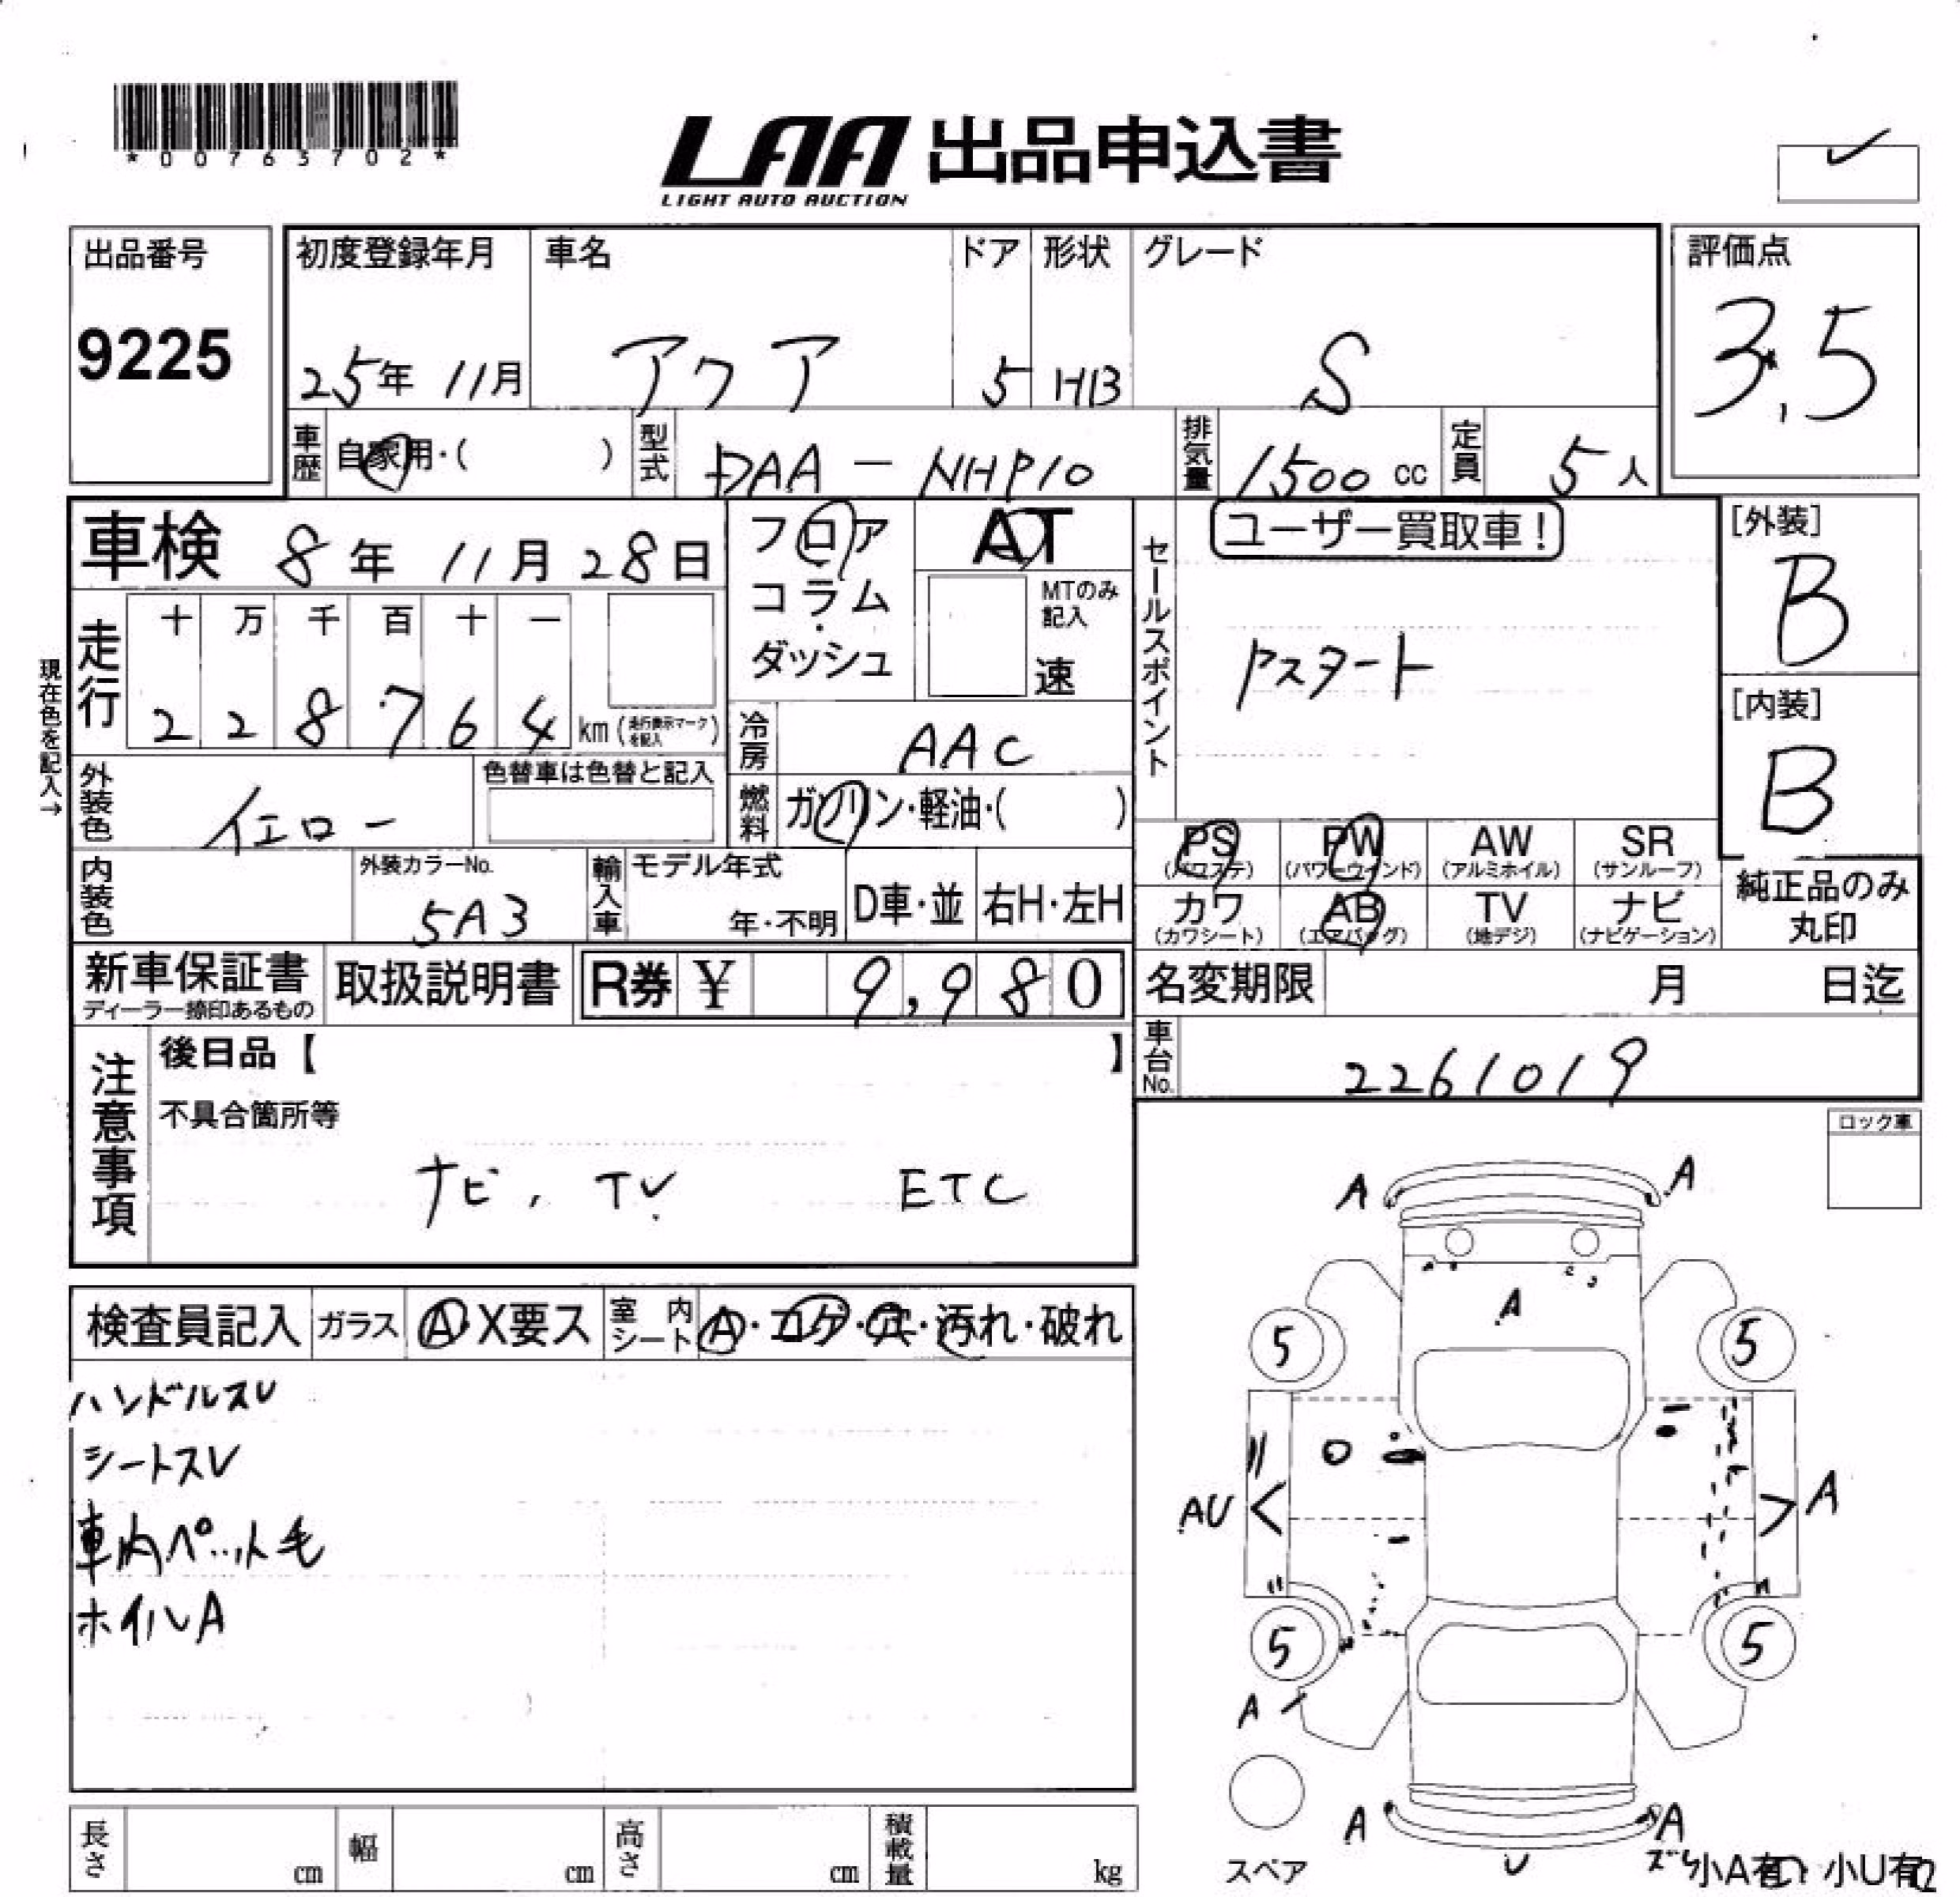 *00763702*
LAA 出品申込書
LIGHT AUTO AUCTION
出品番号
9225
初度登録年月
25年 11月
車名
アクア
ドア
5
形状
HB
グレード
S
評価点
3.5
車歴 自家用・( )
型式 DAA - NHP10
排気量 1500 cc
定員 5人
車検 8年 11月 28日
フロア
コラム
・
ダッシュ
AT
MTのみ
記入
速
セールスポイント
ユーザー買取車!
Pスタート
[外装]
B
[内装]
B
現在色を記入→
走行
十 万 千 百 十 一
2 2 8 7 6 4 km (走行表示マークを記入)
冷房 AAC
外装色 イエロー
色替車は色替と記入
燃料 ガソリン・軽油・( )
PS
(パワステ)
PW
(パワーウインド)
AW
(アルミホイル)
SR
(サンルーフ)
カワ
(カワシート)
AB
(エアバッグ)
TV
(地デジ)
ナビ
(ナビゲーション)
純正品のみ
丸印
内装色
外装カラーNo.
5A3
輸入車
モデル年式
年・不明
D車・並
右H・左H
新車保証書
ディーラー捺印あるもの
取扱説明書
R券 ¥ 9,980
名変期限 月 日迄
車台No. 2261019
注意事項
後日品【 】
不具合箇所等
ナビ, TV ETC
ロック車
検査員記入
ガラス A・X要ス
室内シート A・コゲ・穴・汚れ・破れ
ハンドルスレ
シートスレ
車内ペット毛
ホイルA
A A
A
5 5
AU A
5 5
A
A A
U
スペア
小A有 小U有
長さ cm
幅 cm
高さ cm
積載量 kg